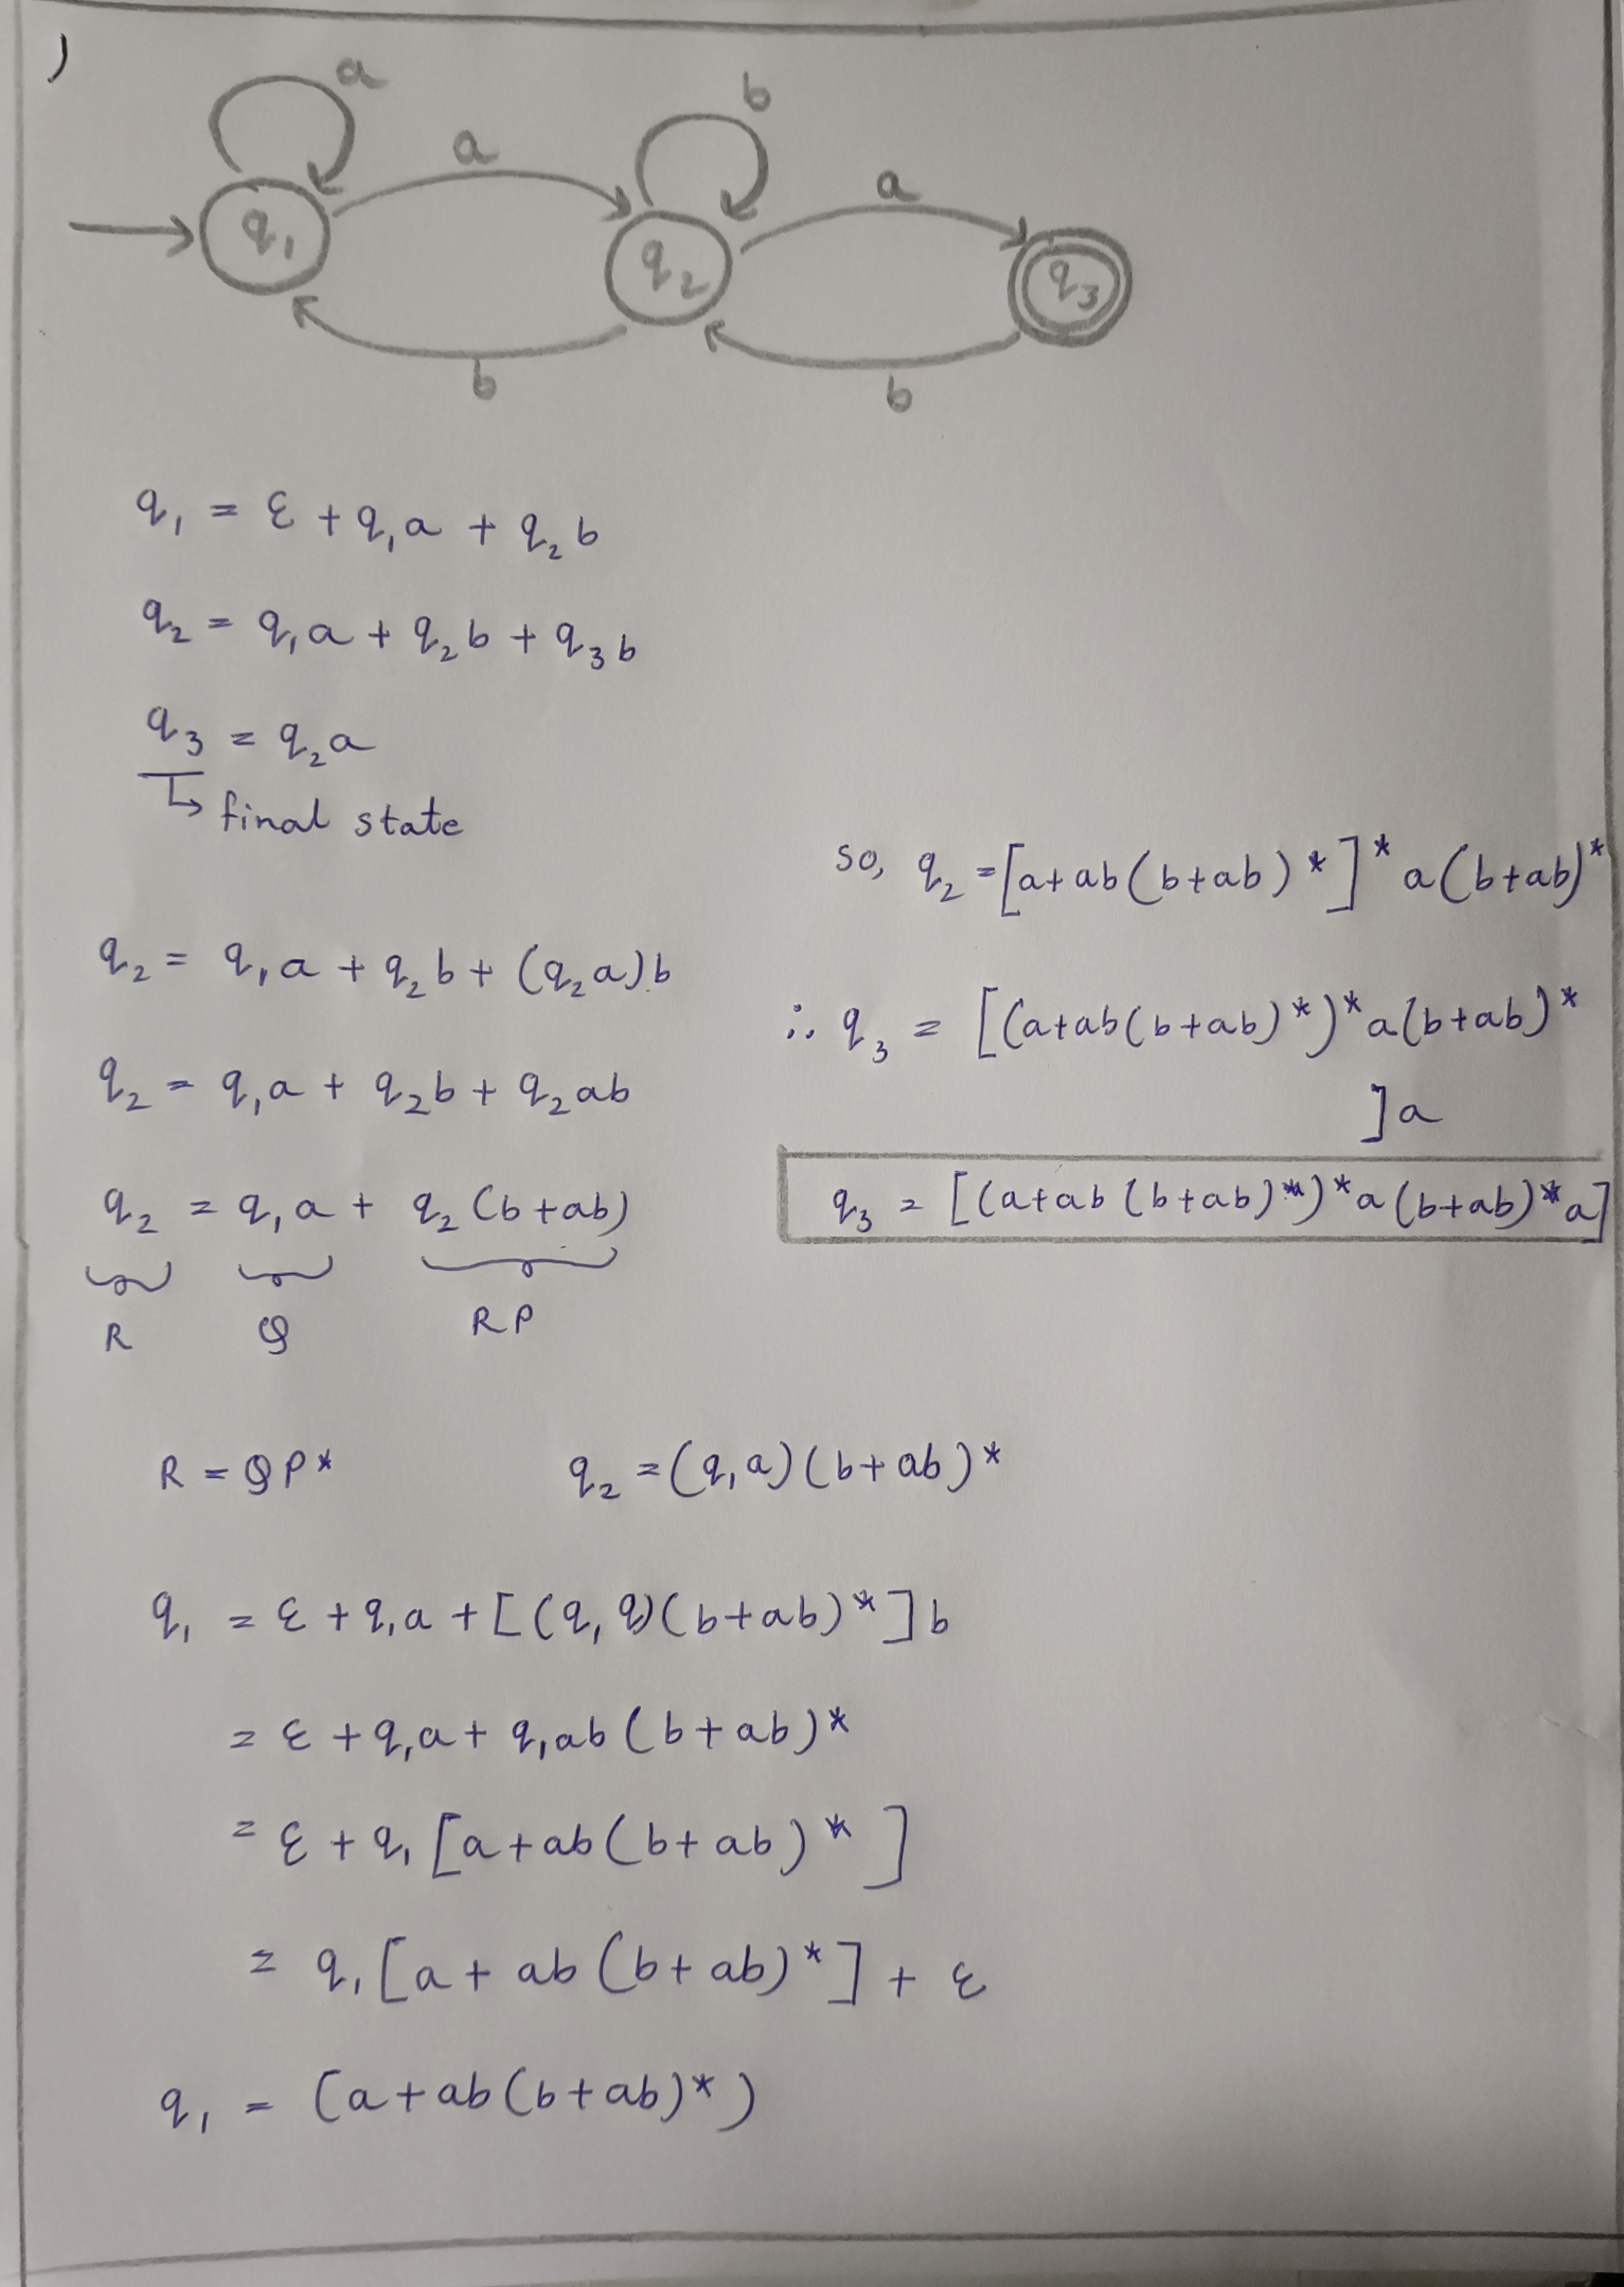 )
a
a
b
a
q₁
q₂
q₃
b
b
q₁ = ε + q₁a + q₂b
q₂ = q₁a + q₂b + q₃b
q₃ = q₂a
↳ final state
q₂ = q₁a + q₂b + (q₂a)b
q₂ = q₁a + q₂b + q₂ab
q₂ = q₁a + q₂(b+ab)
R Q RP
R = QP* q₂ = (q₁a)(b+ab)*
q₁ = ε + q₁a + [(q₁a)(b+ab)*]b
= ε + q₁a + q₁ab(b+ab)*
= ε + q₁[a+ab(b+ab)*]
= q₁[a+ab(b+ab)*] + ε
q₁ = (a+ab(b+ab)*)
so, q₂ = [a+ab(b+ab)*]* a(b+ab)*
∴ q₃ = [(a+ab(b+ab)*)*a(b+ab)*
]a
q₃ = [(a+ab(b+ab)*)*a(b+ab)*a]